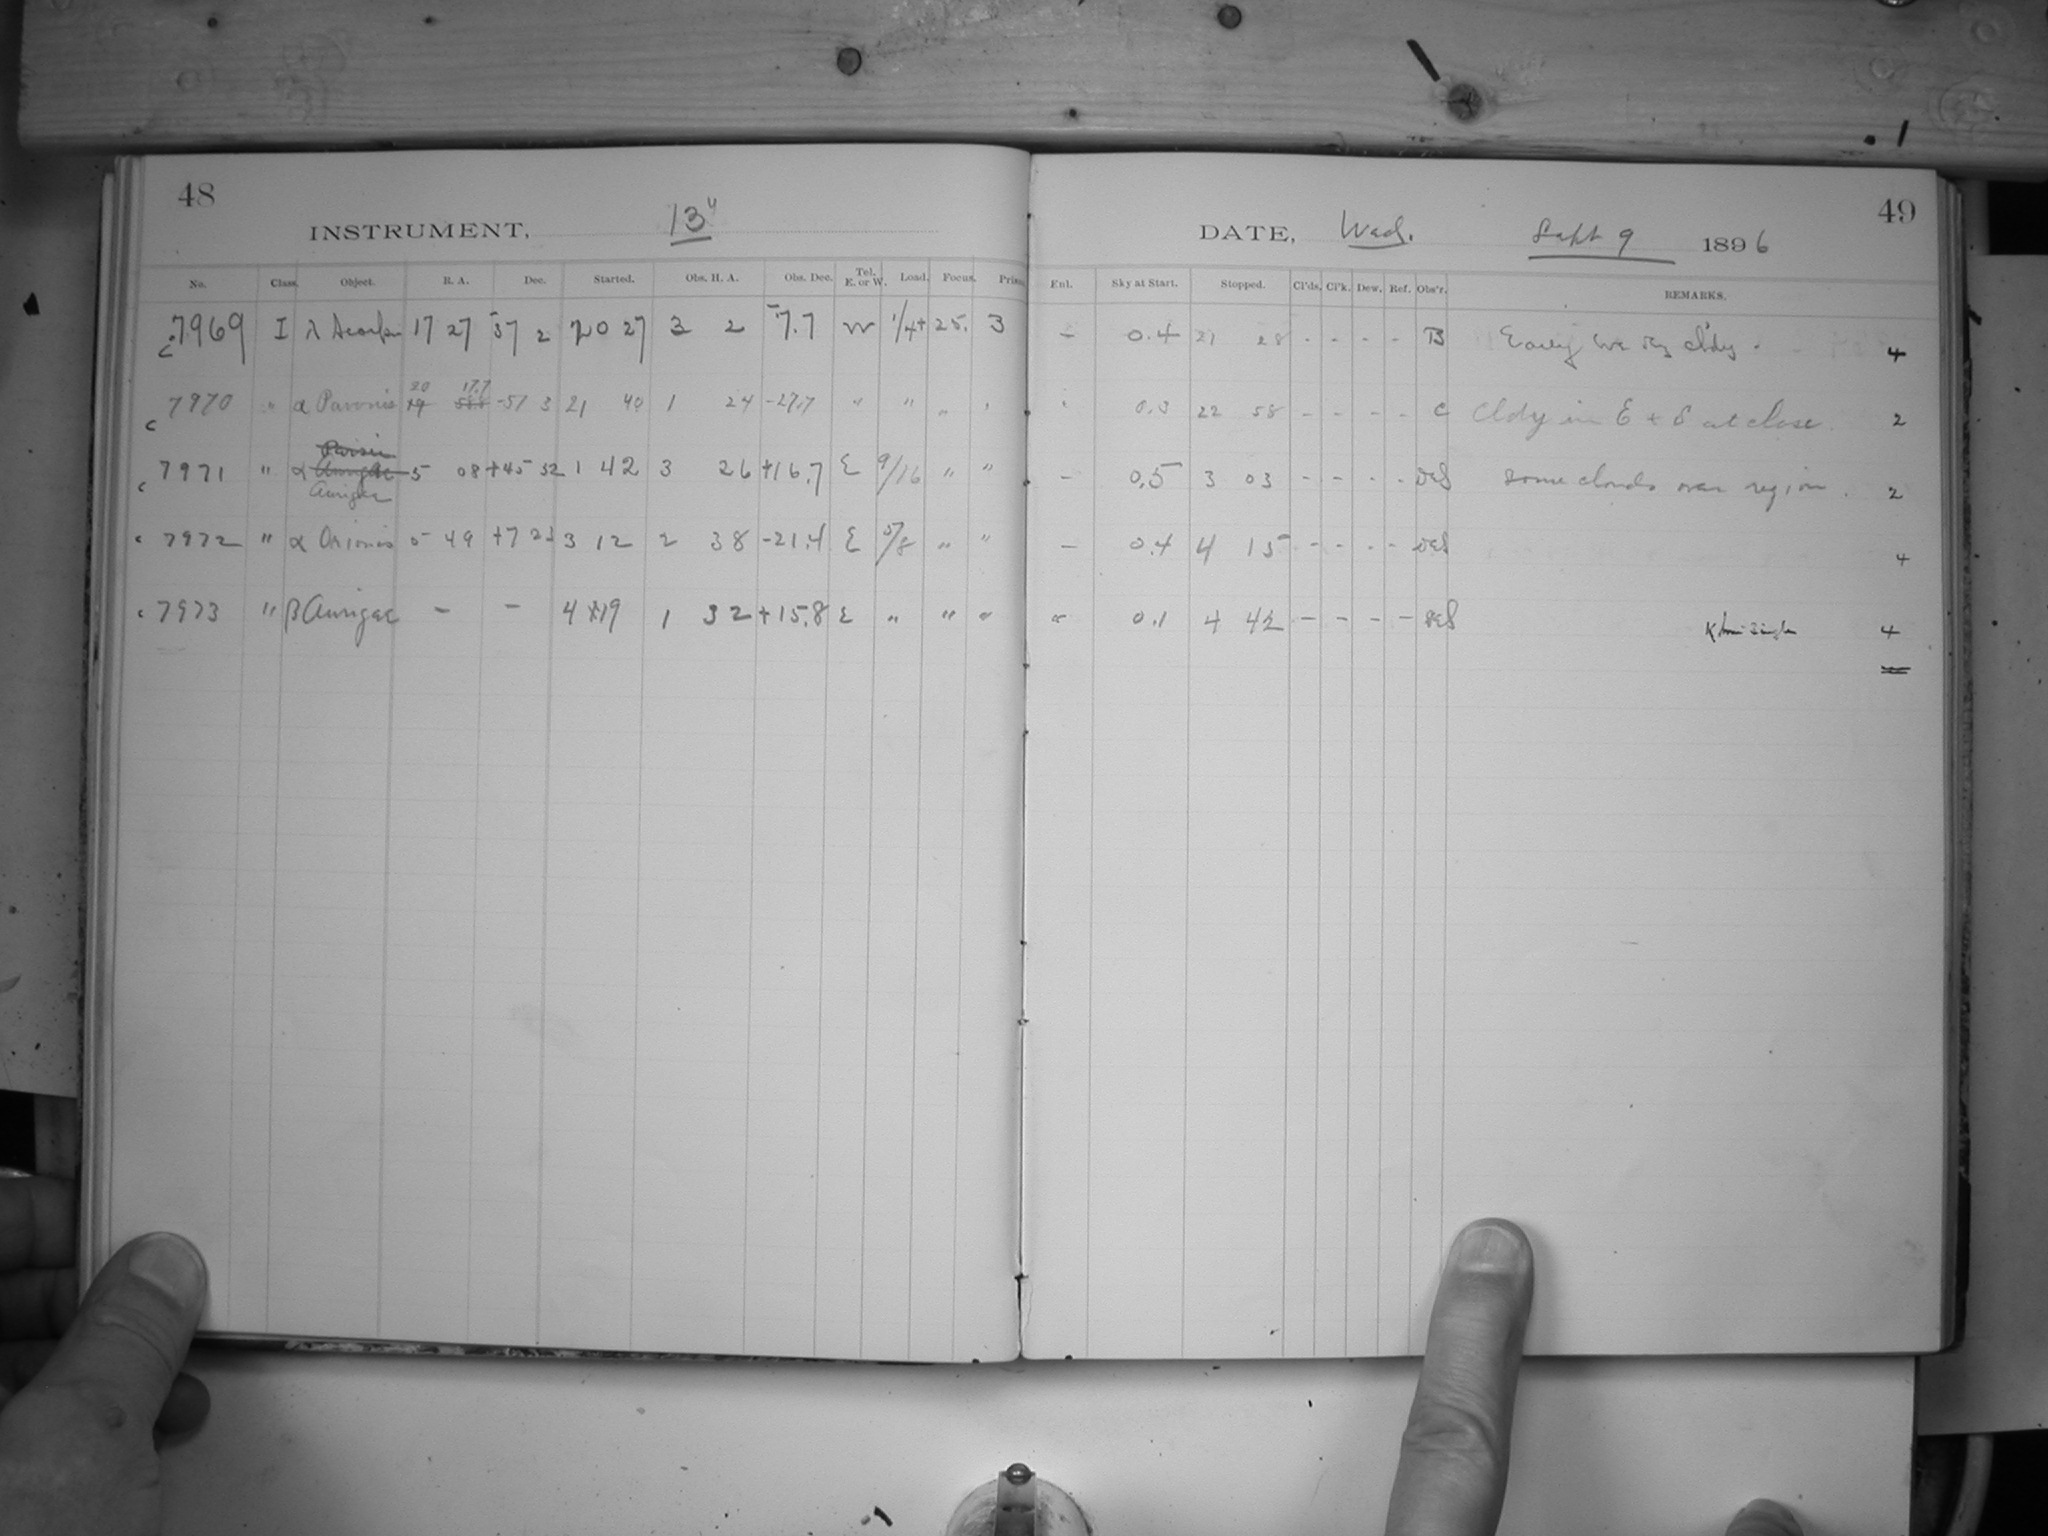 48
INSTRUMENT, 13"
No. Class. Object. R. A. Dec. Started. Obs. H. A. Obs. Dec. Tel. E. or W. Load. Focus. Prism
c 7969 I λ Scorpii 17 27 -37 2 20 27 3 2 -7.7 W 1/4+ 25. 3
20 17.7
c 7970 " α Pavonis 19 58.8 -57 3 21 40 1 24 -27.7 " " " "
c 7971 " α Aurigae 5 08 +45 52 1 42 3 26 +16.7 E 9/16 " "
Aurigae
c 7972 " α Orionis 5 49 +7 23 3 12 2 38 -21.4 E 5/8 " "
c 7973 " β Aurigae - - 4 19 1 32 +15.8 E " " "
49
DATE, Wed. Sept 9 1896
Enl. Sky at Start. Stopped. Cl'ds. Cl'k. Dew. Ref. Obs'r. REMARKS.
- 0.4 21 28 - - - - B Early eve sky cldy. 4
" 0.3 22 58 - - - - C Cldy in E + S at close. 2
- 0.5 3 03 - - - - DeS some clouds over region. 2
- 0.4 4 15 - - - - DeS 4
" 0.1 4 42 - - - - DeS K line single 4